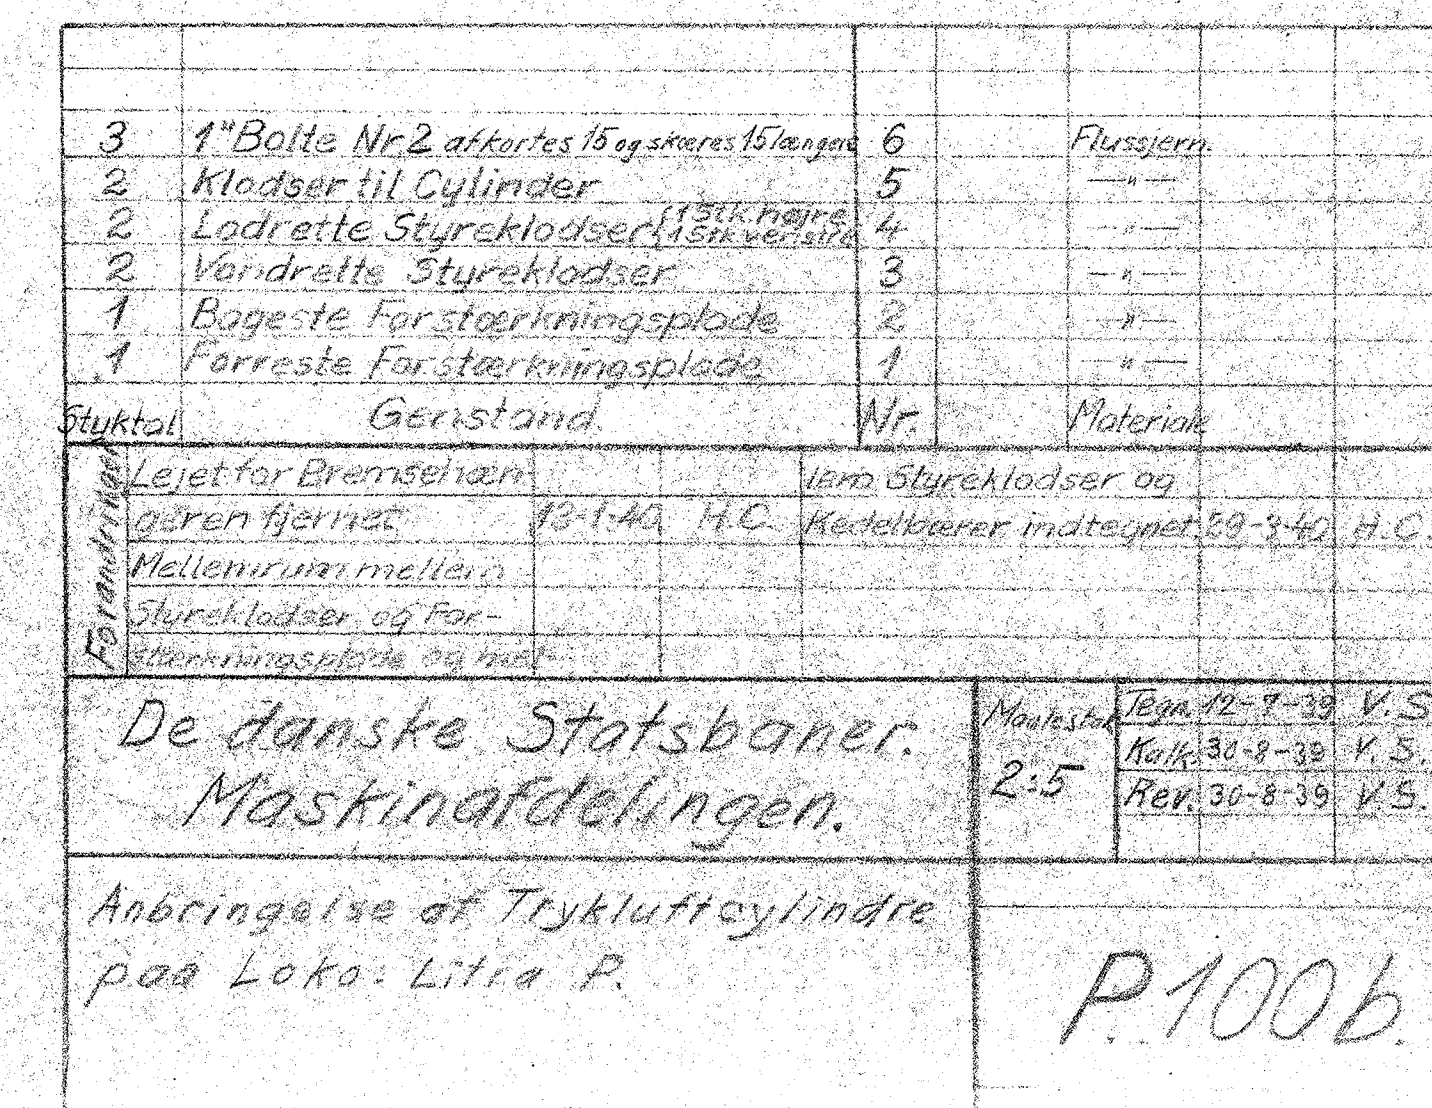 3 1" Bolte Nr. 2 afkortes 15 og skæres 15 længere 6 Flussjern.
2 Klodser til Cylinder 5 —"—
2 Lodrette Styreklodser { 1 Stk. højre 1 Stk. venstre 4 —"—
2 Vandrette Styreklodser 3 —"—
1 Bageste Forstærkningsplade 2 —"—
1 Forreste Forstærkningsplade 1 —"—
Styktal Genstand. Nr. Materiale
Forandringer
Lejet for Bremsehæn-
geren fjernet 13-1-40 H.C.
Mellemrum mellem
Styreklodser og For-
stærkningsplade og mel-
lem Styreklodser og
Kedelbærer indtegnet. 29-3-40 H.C.
De danske Statsbaner.
Maskinafdelingen.
Maalestok
2:5
Tegn. 12-7-39 V.S.
Kalk. 30-8-39 V.S.
Rev. 30-8-39 V.S.
Anbringelse af Trykluftcylindre
paa Loko. Litra P.
P.100b.